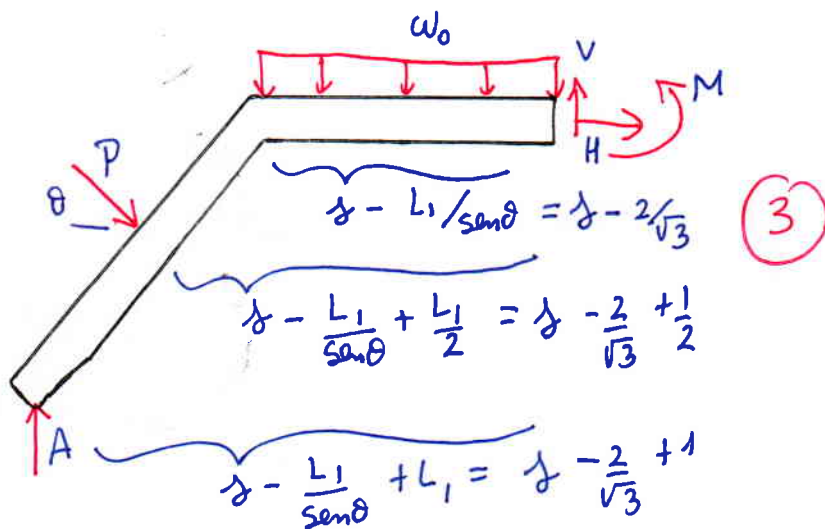 ω₀
V
M
H
P
θ
s - L₁/senθ = s - 2/√3
3
s - L₁/senθ + L₁/2 = s - 2/√3 + 1/2
A
s - L₁/senθ + L₁ = s - 2/√3 + 1